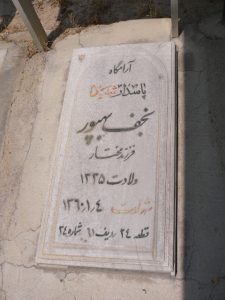 آرامگاه
پاسدار شهید
نجف بهپور
فرزند مختار
ولادت ۱۳۳۵
شهادت ۱۳۶۰/۱/۴
قطعه ۲۴ ردیف ۶۱ شماره ۲۴